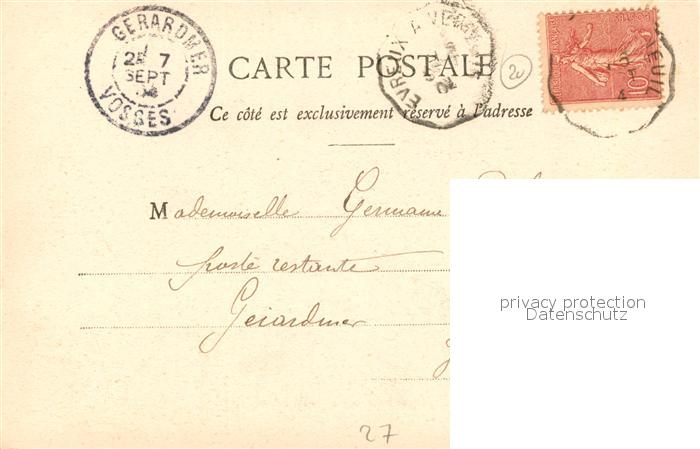 GERARDMER
2E 7
SEPT
04
VOSGES
CARTE POSTALE
Ce côté est exclusivement réservé à l'adresse
EVREUX A V
20
10
Mademoiselle Germaine
poste restante
Gerardmer
privacy protection
Datenschutz
27